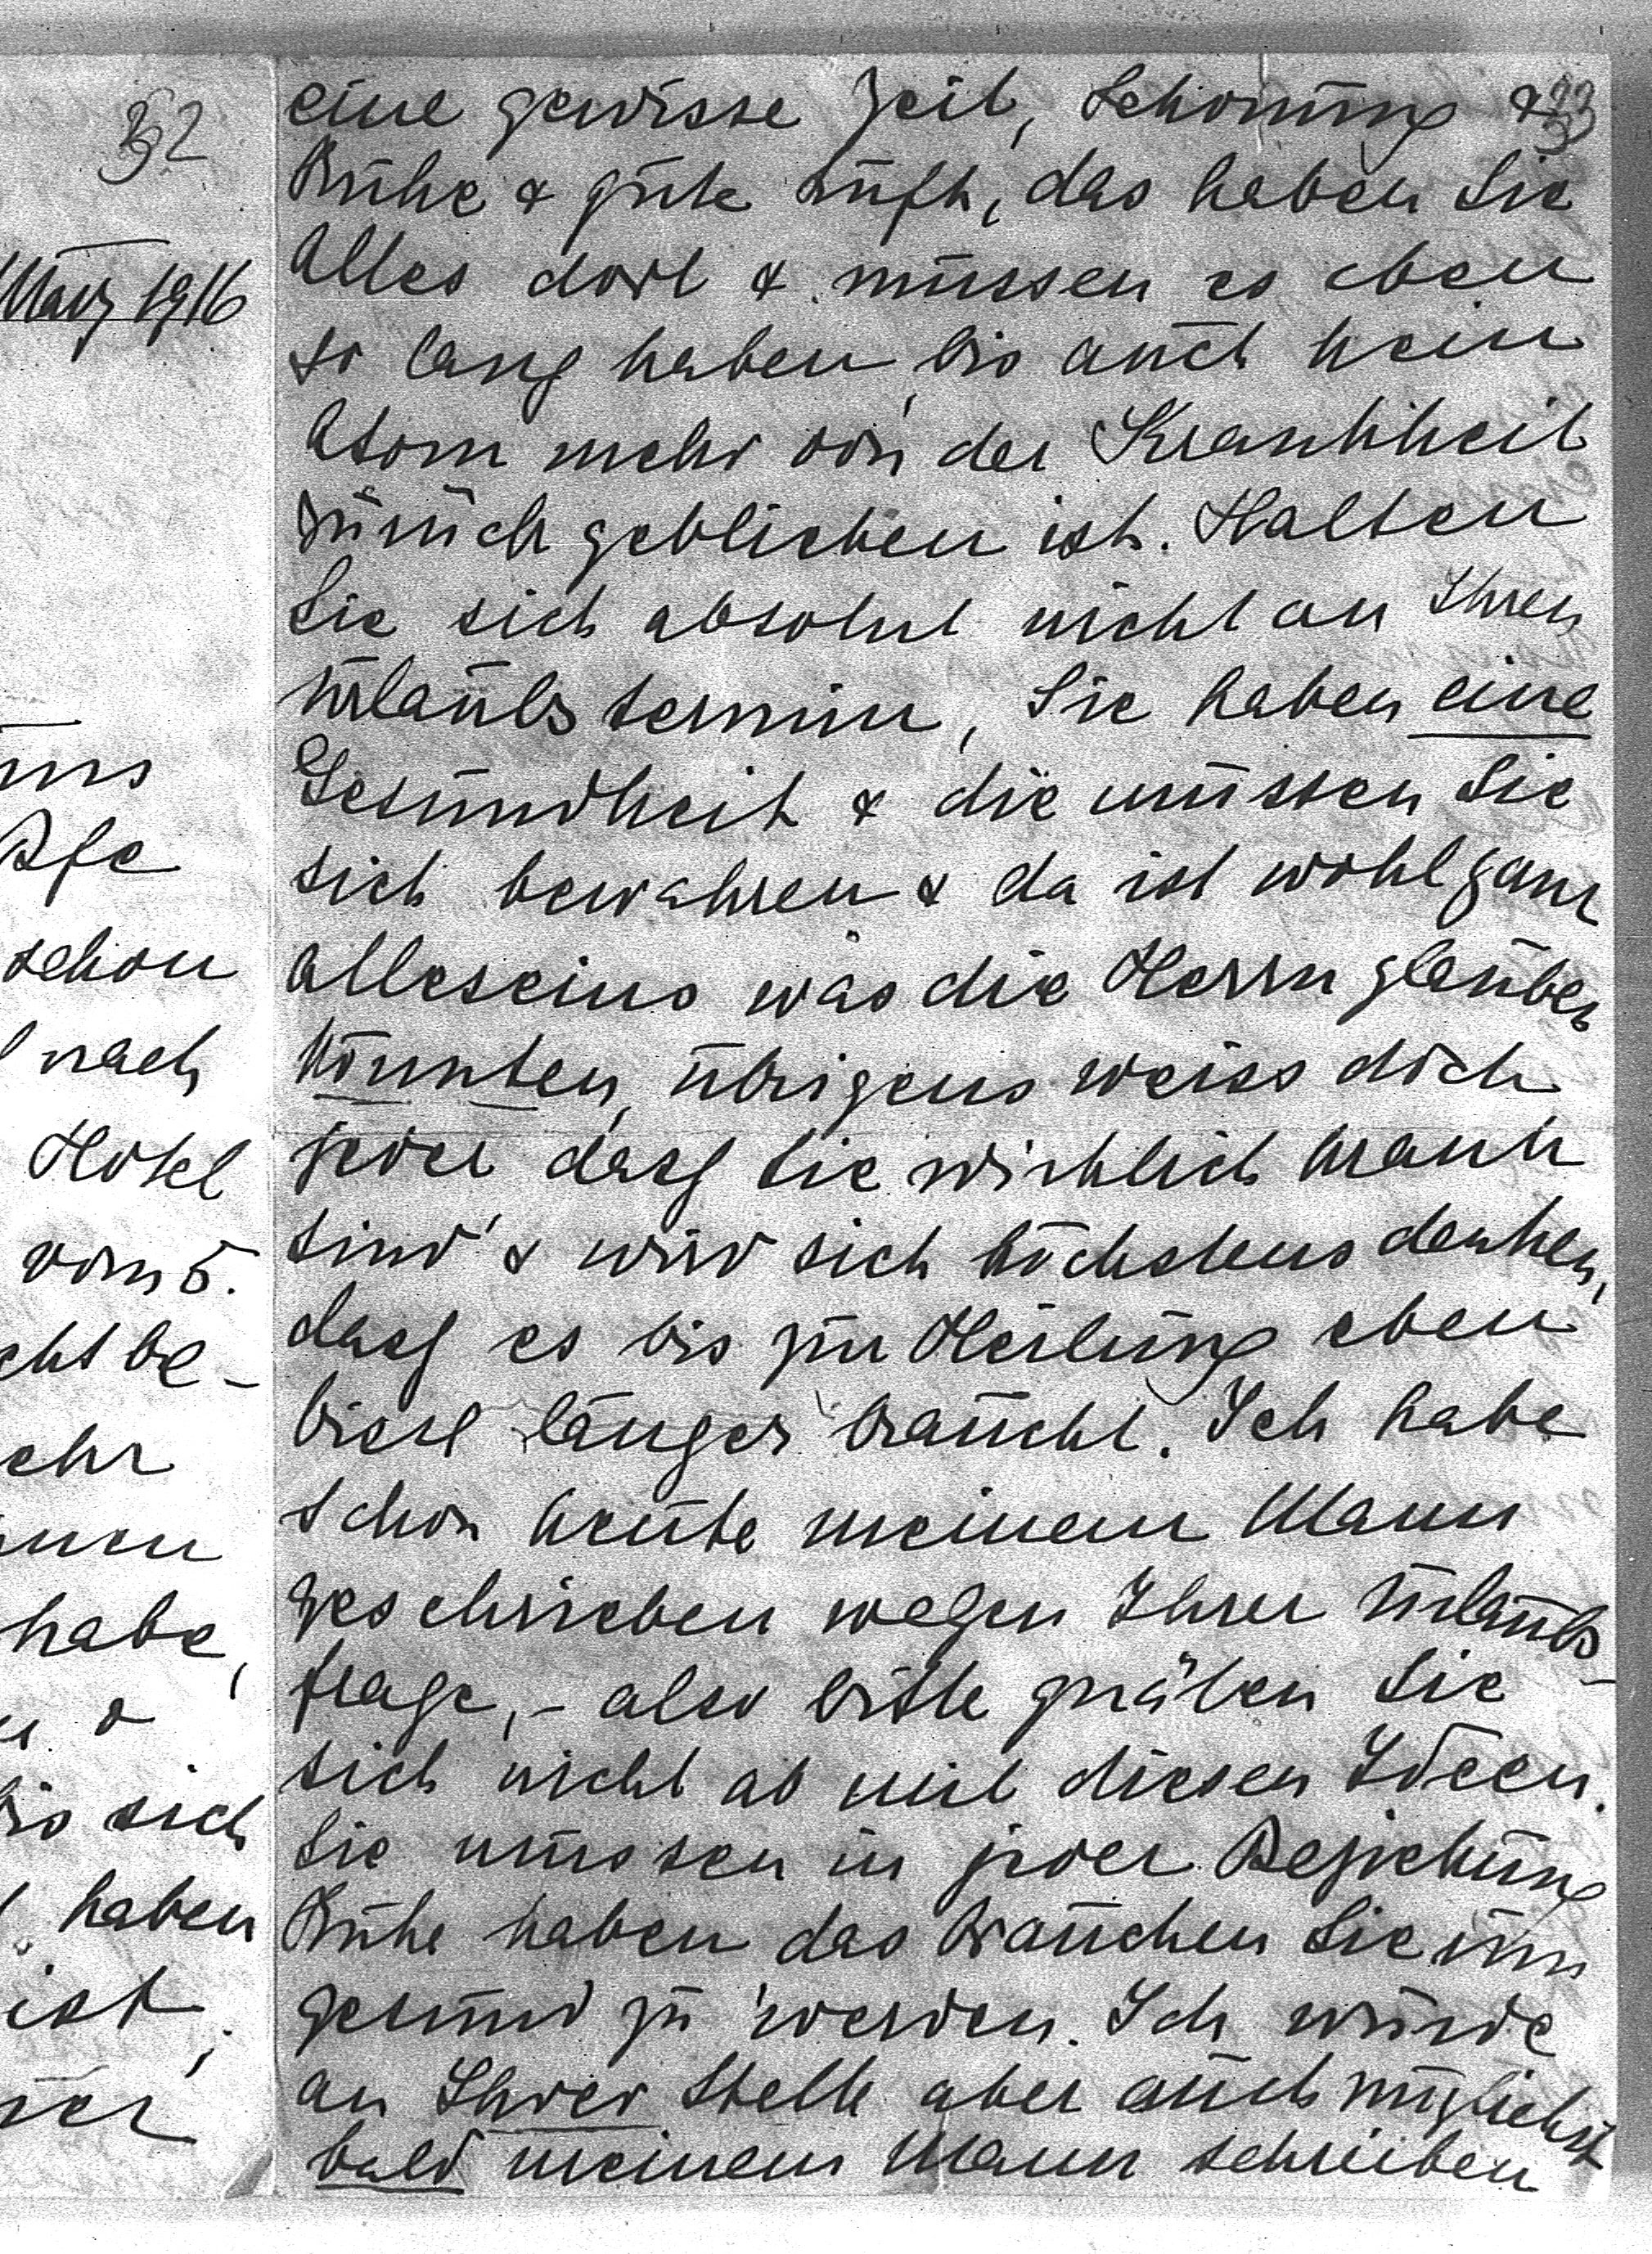 32
März 1916
ns
Bfe
schon
nach
Hotel
vom 5.
cht be-
ehr
nen
habe,
bis sich
haben
ist,
33
eine gewisse Zeit, Schonung &
Ruhe & gute Luft, das haben Sie
Alles dort & müssen es eben
so lang haben, bis auch kein
Atom mehr von der Krankheit
zurück geblieben ist. Halten
Sie sich absolut nicht an Ihren
Urlaubstermin, Sie haben eine
Gesundheit & die müssen Sie
sich bewahren & da ist wohl ganz
alleseins was die Herrn glauben
könnten, übrigens weiss doch
jeder dass Sie wirklich krank
sind & wird sich höchstens denken,
dass es bis zur Heilung eben
bissl länger braucht. Ich habe
schon heute meinem Mann
geschrieben wegen Ihrer Urlaubs-
frage, - also bitte quälen Sie
sich nicht ab mit diesen Ideen.
Sie müssen in jeder Beziehung
Ruhe haben das brauchen Sie um
gesund zu werden. Ich würde
an Ihrer Stelle aber auch möglichst
bald meinem Mann schreiben